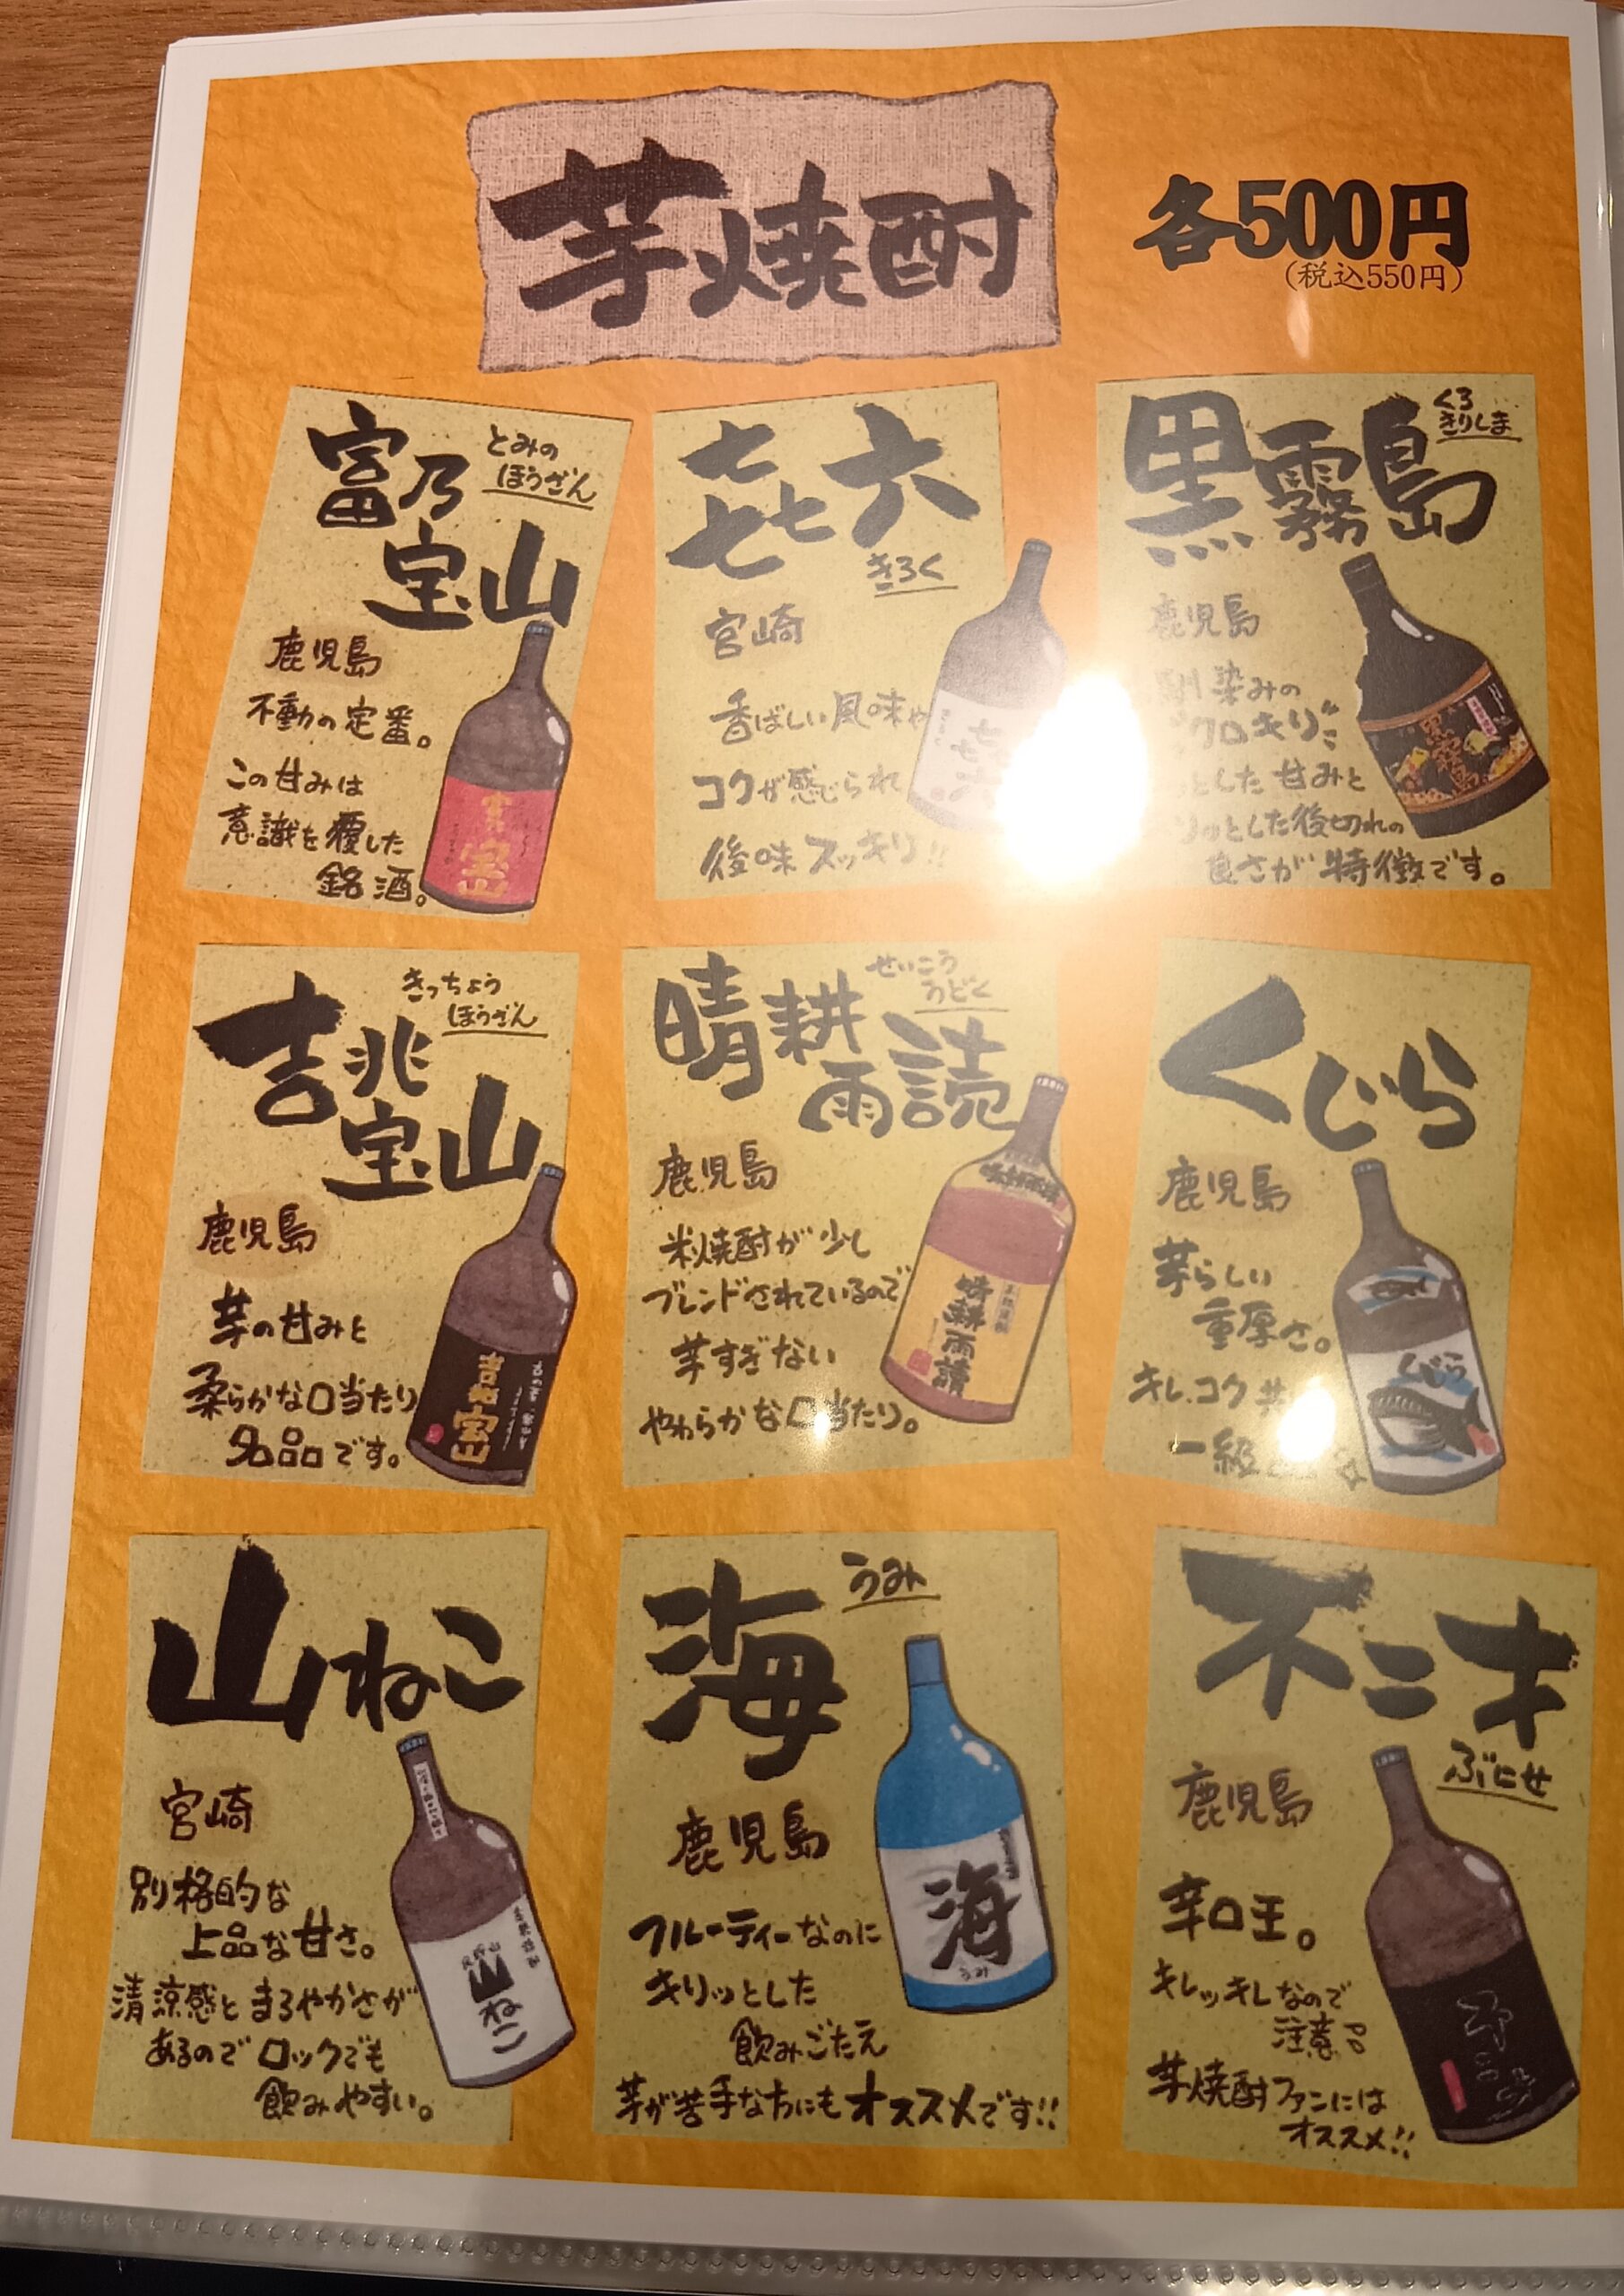 芋焼酎
各500円
(税込550円)
富乃
宝山
とみの
ほうざん
鹿児島
不動の定番。
この甘みは
意識を覆した
銘酒。
㐂六
きろく
宮崎
香ばしい風味や
コクが感じられ
後味スッキリ!!
黒霧島
くろ
きりしま
鹿児島
染みの
"クロキリ"
とした甘みと
リッとした後切れの
良さが特徴です。
黒霧島
吉兆
宝山
きっちょう
ほうざん
鹿児島
芋の甘みと
柔らかな口当たり
名品です。
吉兆宝山
晴耕
雨読
せいこう
うどく
鹿児島
米焼酎が少し
ブレンドされているので
芋すぎない
やわらかな口当たり。
くじら
鹿児島
芋らしい
重厚さ。
キレ.コク
一級
くじら
山ねこ
宮崎
別格的な
上品な甘さ。
清涼感とまろやかさが
あるのでロックでも
飲みやすい。
山ねこ
海
うみ
鹿児島
フルーティーなのに
キリッとした
飲みごたえ
芋が苦手な方にもオススメです!!
海
うみ
不二才
ぶにせ
鹿児島
辛口王。
キレッキレなので
注意!!
芋焼酎ファンには
オススメ!!